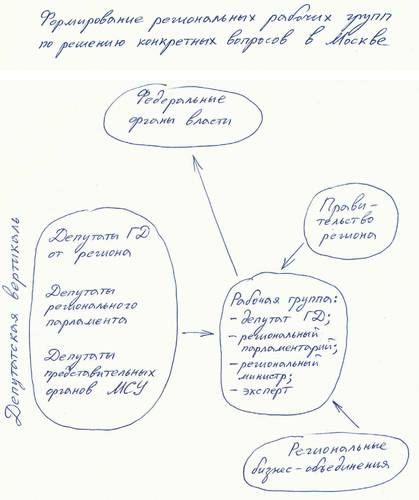 Формирование региональных рабочих групп
по решению конкретных вопросов в Москве
Федеральные
органы власти
Прави-
тельство
региона
Депутатская вертикаль
Депутаты ГД
от региона
Депутаты
регионального
парламента
Депутаты
представительных
органов МСУ
Рабочая группа:
- депутат ГД;
- региональный
парламентарий;
- региональный
министр;
- эксперт
Региональные
бизнес-объединения